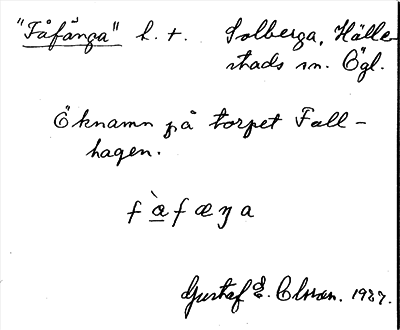 "Fåfänga" h. t. Solberga, Hälle-
stads sn. Ögl.
Öknamn på torpet Fall-
hagen.
f æ̀ f æ ŋ a
Gustaf E. Olsson. 1927.